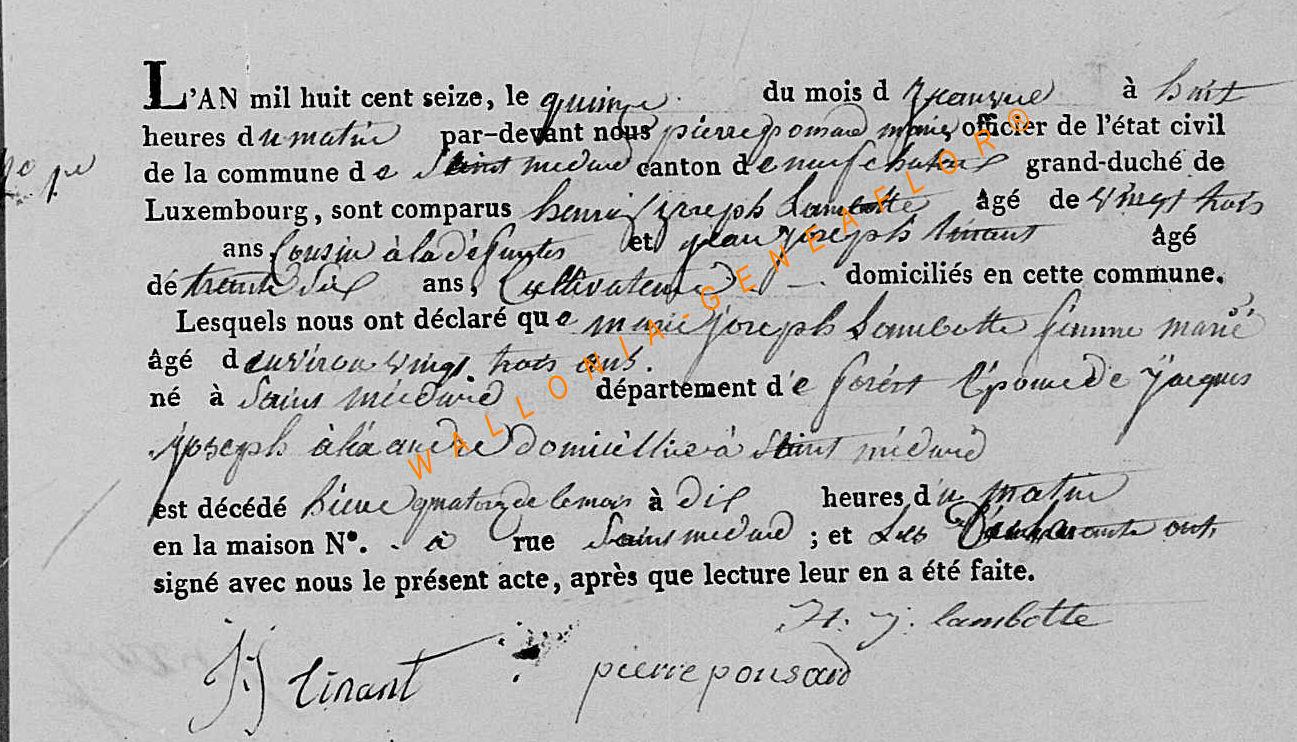 L'AN mil huit cent seize, le quinze du mois d janvié à huit
heures du matin par-devant nous pierre ponsard maire officier de l'état civil
de la commune de Saint médard canton de neufchateau grand-duché de
Luxembourg, sont comparus henri joseph Lambotte âgé de vingt trois
ans cousin à la défuntes et jean joseph tinant âgé
dé trente six ans, Cultivateurs domiciliés en cette commune.
Lesquels nous ont déclaré que marie joseph Lambotte femme marié
âgé denviron vingt trois ans.
né à Saint médard département de forêt Epouse de jacques
joseph domicilliée à Saint médard
est décédé hiere quatorze de le mois à dix heures du matin
en la maison N°. à rue Saint medard ; et Les ont
signé avec nous le présent acte, après que lecture leur en a été faite.
H. j. lambotte
J J tinant pierre ponsard
WALLONIA-GENEAFLOR®